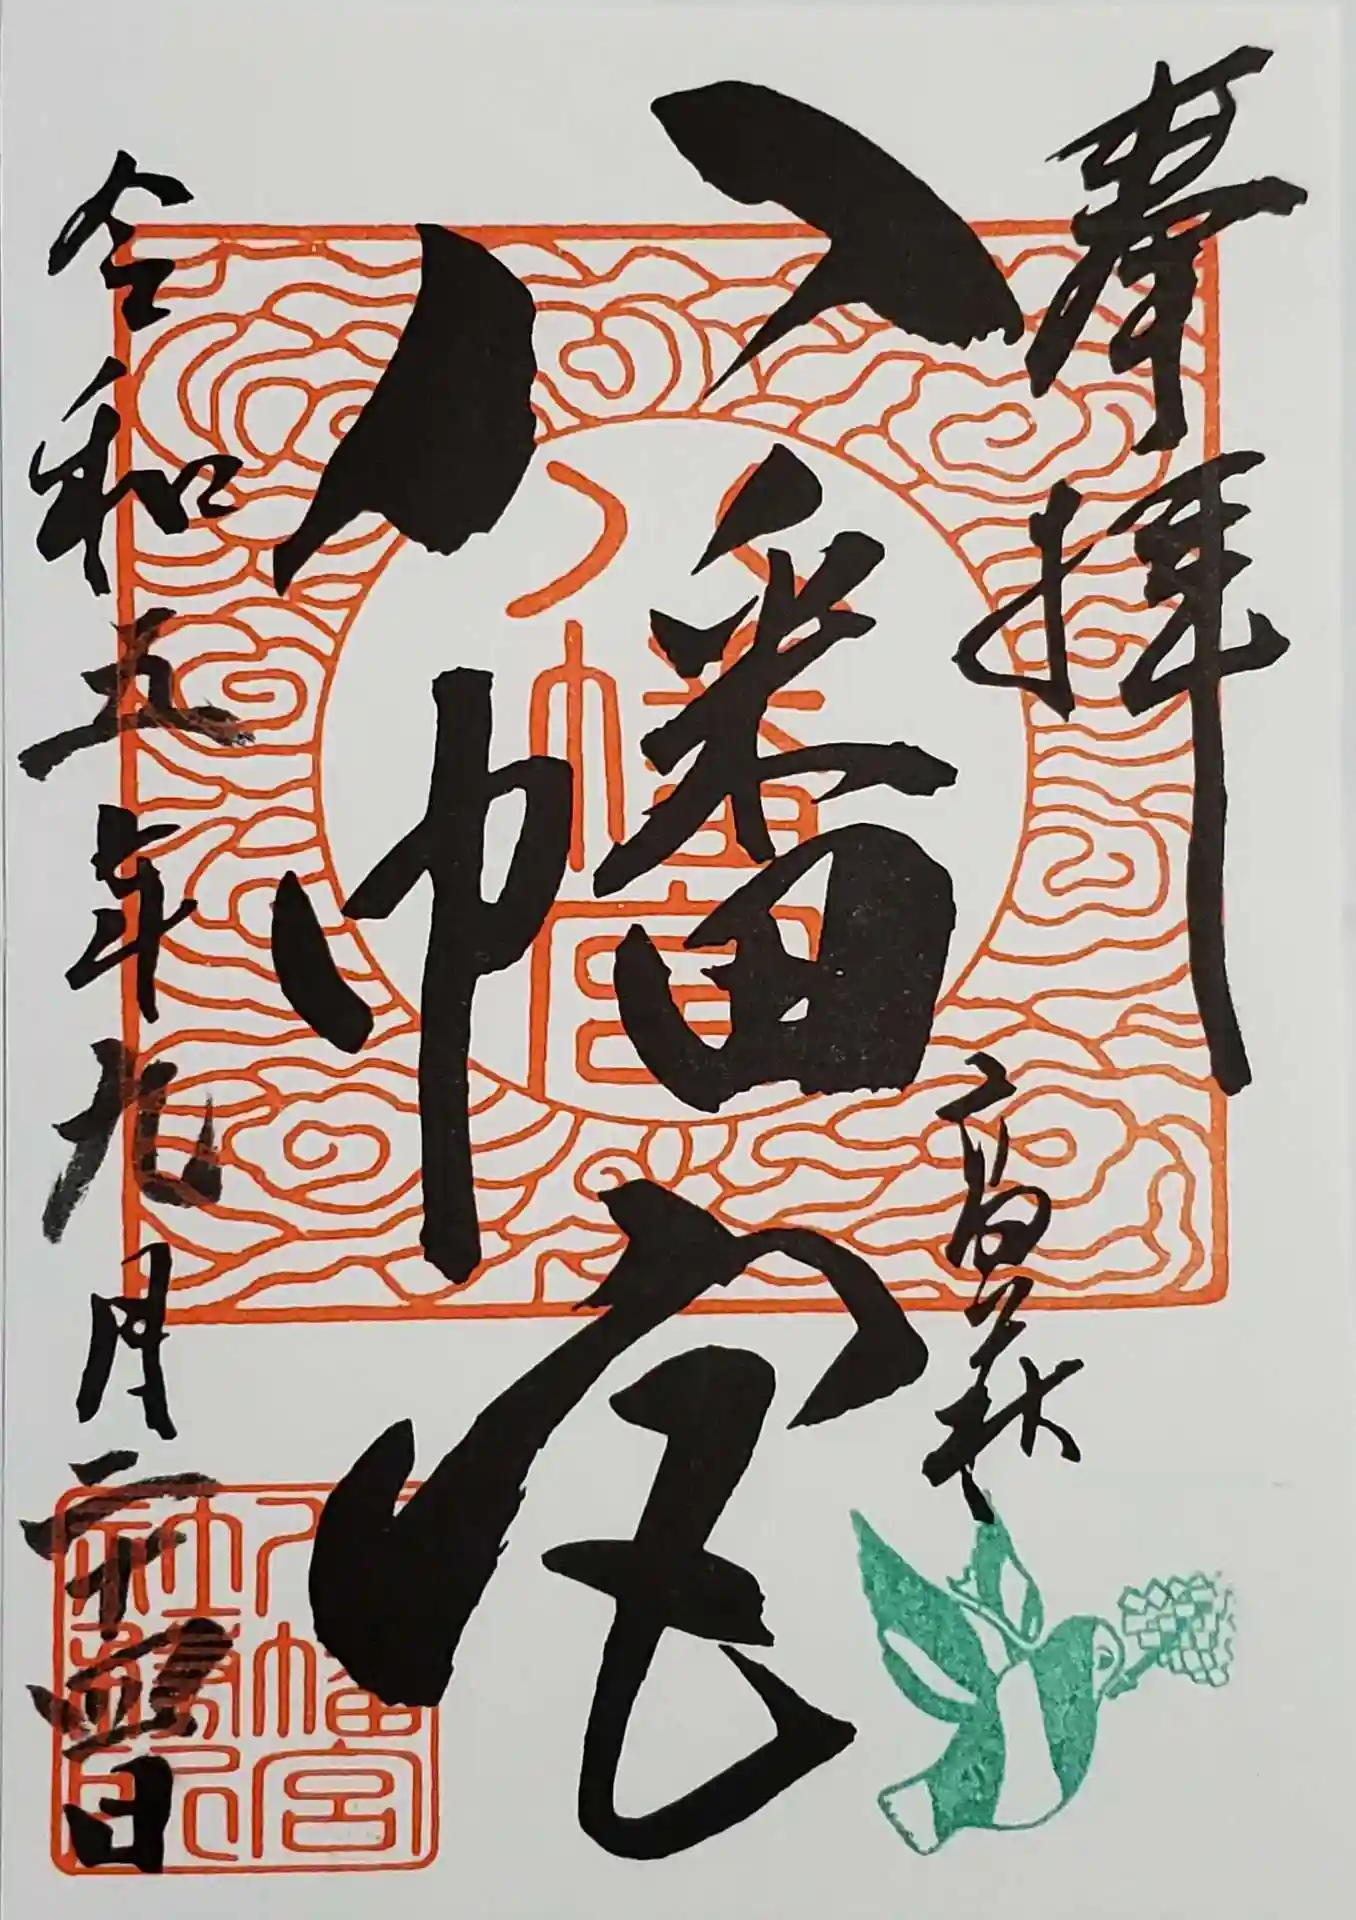 奉拝
高萩
八幡宮
八幡宮
令和五年九月二十四日
八幡宮
社務所